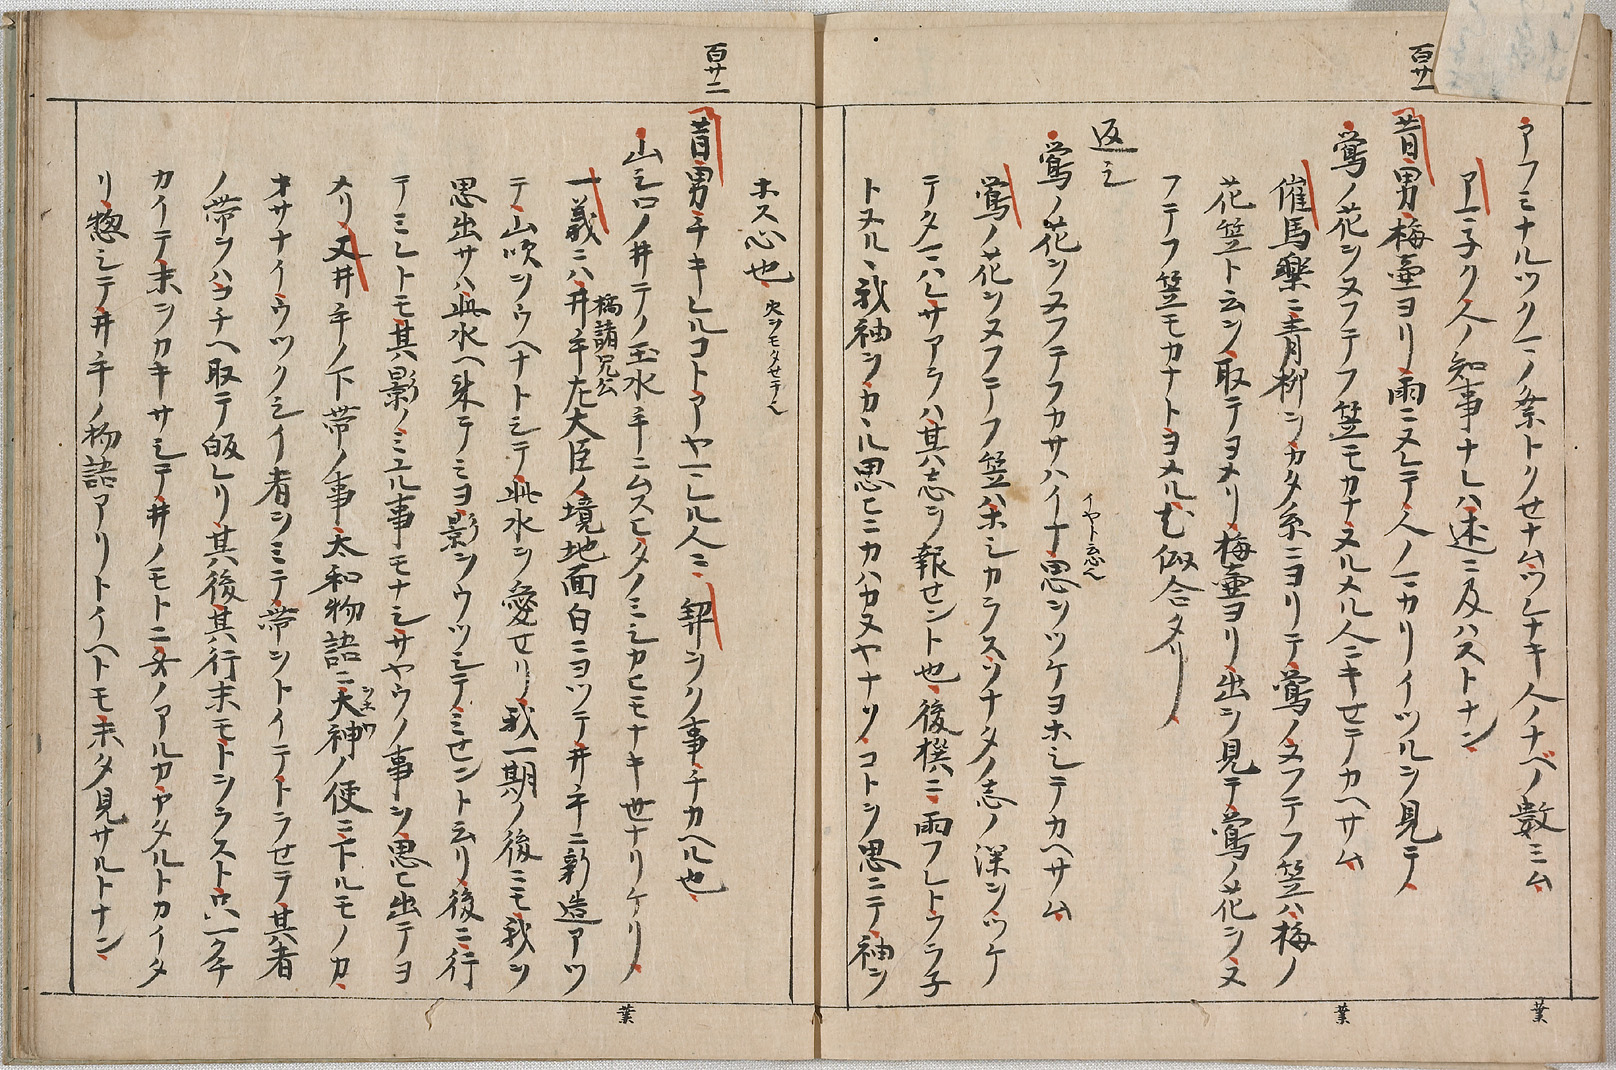 百廿一
アフミナルツクマノ祭トクセナムツレナキ人ノナベノ數ミム
アマ子ク人ノ知事ナレハ述ニ及ハストナン
昔男梅壷ヨリ雨ニヌレテ人ノマカリイツルヲ見テ
鶯ノ花ヲヌフテフ笠モカナヌルメル人ニキセテカヘサム
催馬樂ニ青柳ヲカタ糸ニヨリテ鶯ノヌフテフ笠ハ梅ノ
花笠ト云ヲ取テヨメリ梅壷ヨリ出ヲ見テ鶯ノ花ヲヌ
フテフ笠モカナトヨメル尤似合タリ
返シ
鶯ノ花ヲヌフテフカサハイナ思ヲツケヨホシテカヘサム
イヤト云心
鶯ノ花ヲヌフテフ笠ハホシカラスソナタノ志ノ深ヲツケ
テタマハレサアラハ其志ヲ報セント也後撰ニ雨フレトフラ子
トヌルヽ我袖ヲカヽル思ヒニカハカヌヤナソコトヲ思ニテ袖ヲ
葉
葉
百廿二
ホス心也
火ヲモタセテ心
昔男チキレルコトアヤマレル人ニ契ヲク事チカヘル也
山シロノ井テノ玉水手ニムスヒタノミシカヒモナキ世ナリケリ
一義ニハ井手左大臣ノ境地面白ニヨツテ井手ニ新造アツ
橘諸兄公
テ山吹ヲウヘナトシテ此水ヲ愛セリ我一期ノ後ニモ我ヲ
思出サハ此水ヘ来テミヨ影ヲウツシテミセント云リ後ニ行
テミレトモ其影ノミユル事モナシサヤウノ事ヲ思ヒ出テヨ
メリ又井手ノ下帯ノ事太和物語ニ大神ノ使ニ下ルモノカ
オサナイウツクシイ者ヲミテ帯ヲトイテトラセテ其者
ノ帯ヲハコチヘ取テ皈レリ其後其行末モトヲラスト只一クチ
カイテ末ヲカキサシテ井ノモトニ女ノアルカヤタルトカイタ
リ惣シテ井手ノ物語アリトイヘトモ未タ見サルトナン
葉